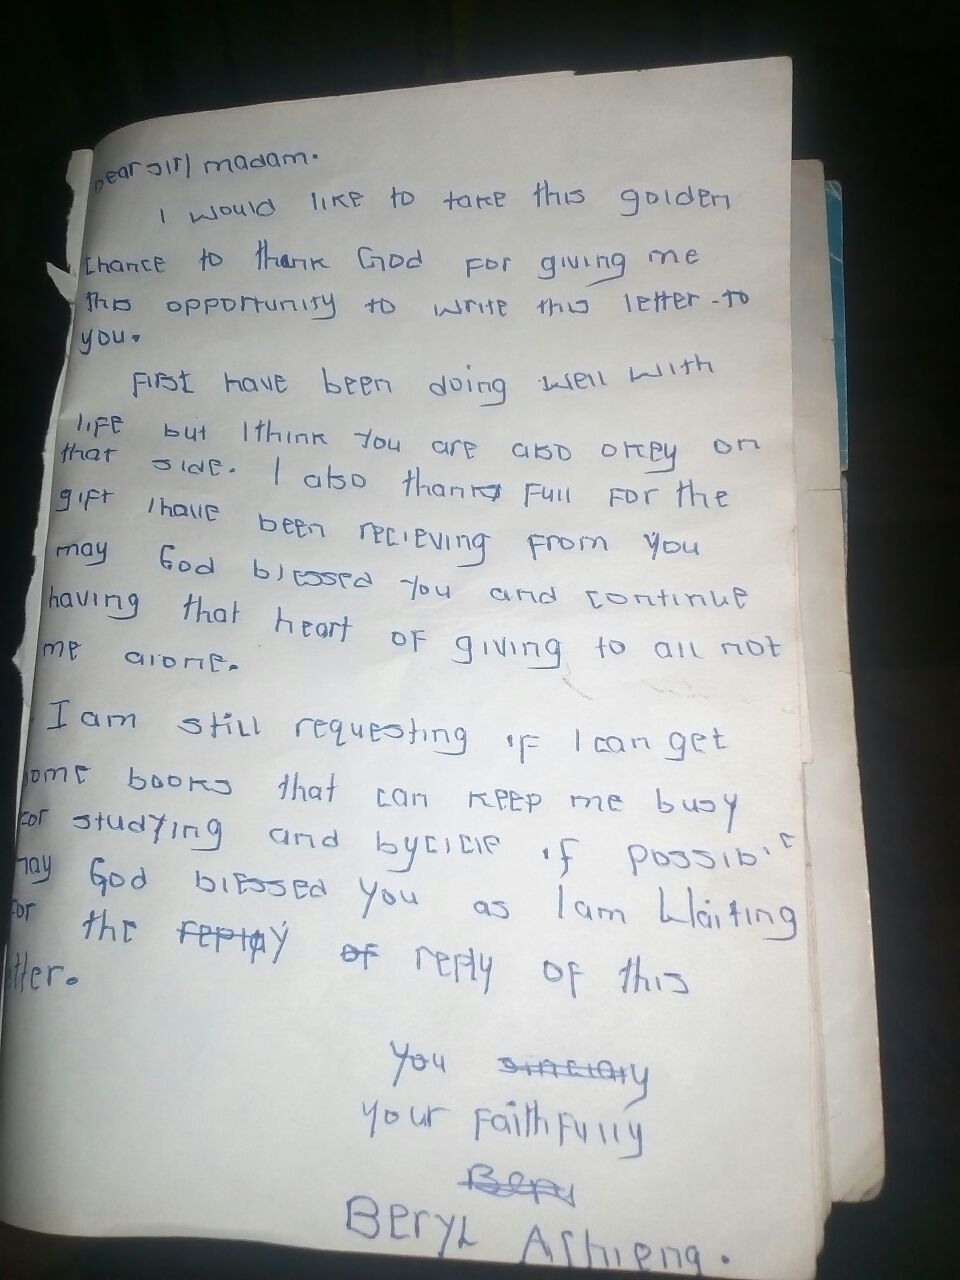 Dear sir/ madam.
I would like to take this golden
chance to thank God for giving me
this opportunity to write this letter to
you.
First have been doing well with
life but I think you are also okey on
that side. I also thank full for the
gift I have been recieving from you
may God blessed you and continue
having that heart of giving to all not
me alone.
I am still requesting if I can get
some books that can keep me busy
for studying and bycicle if possible
may God blessed you as I am waiting
for the replay of reply of this
letter.
you sinclary
your faithfully
Bery
Beryl Achieng.